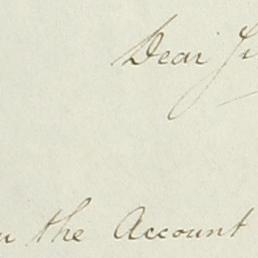 Dear
the Account